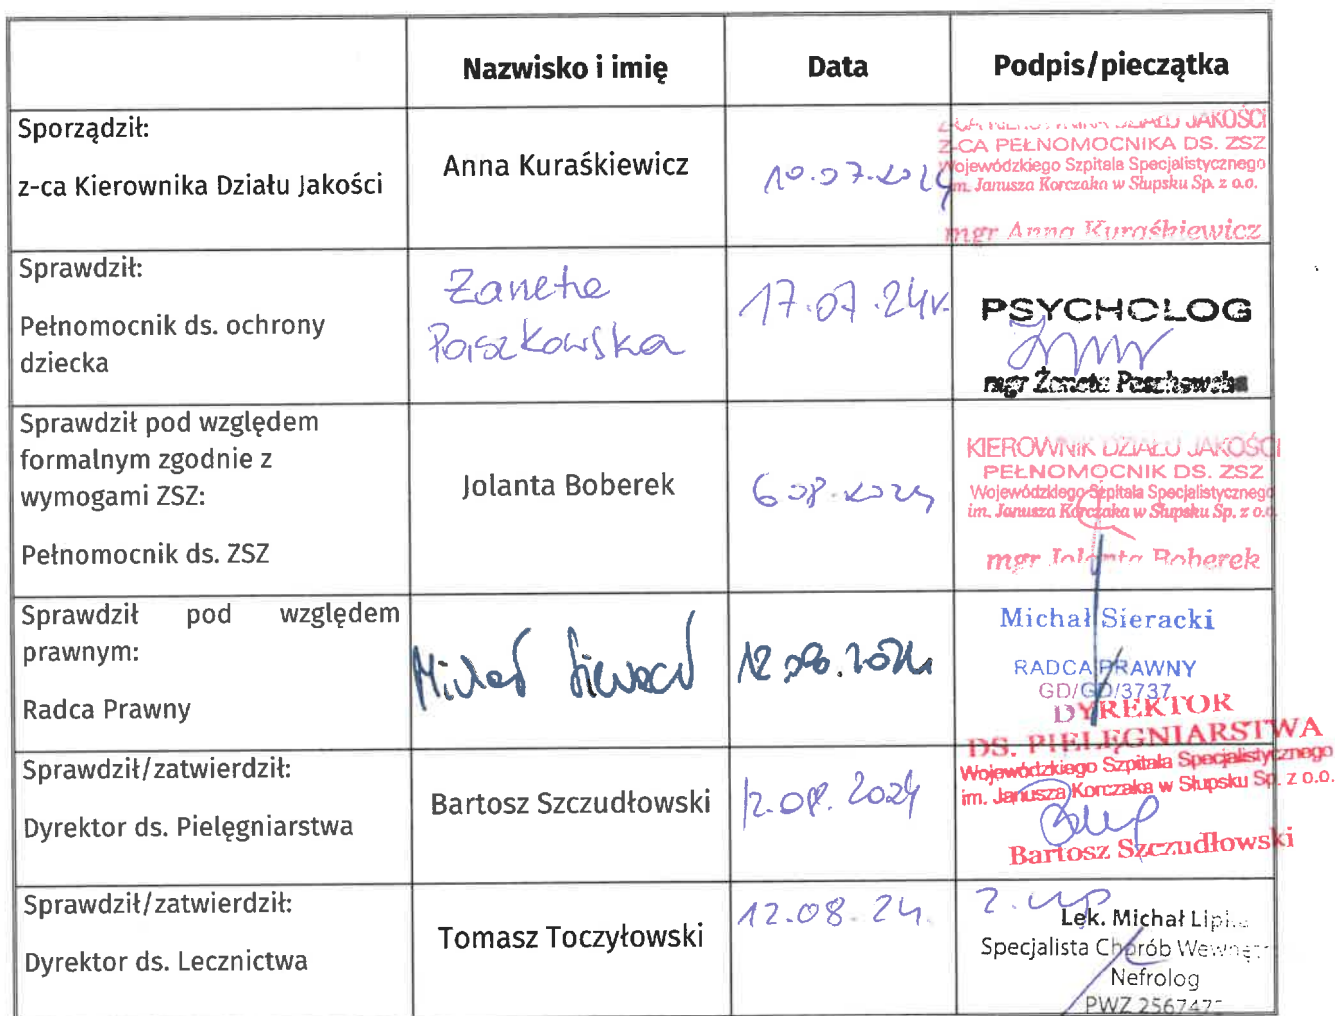 Nazwisko i imię
Data
Podpis/pieczątka
Sporządził:
z-ca Kierownika Działu Jakości
Anna Kuraśkiewicz
10.07.2024
Z-CA KIEROWNIKA DZIAŁU JAKOŚCI
Z-CA PEŁNOMOCNIKA DS. ZSZ
Wojewódzkiego Szpitala Specjalistycznego
im. Janusza Korczaka w Słupsku Sp. z o.o.
mgr Anna Kuraśkiewicz
Sprawdził:
Pełnomocnik ds. ochrony
dziecka
Żaneta
Paszkowska
17.07.24r.
PSYCHOLOG
mgr Żaneta Paszkowska
Sprawdził pod względem
formalnym zgodnie z
wymogami ZSZ:
Pełnomocnik ds. ZSZ
Jolanta Boberek
6 08.2024
KIEROWNIK DZIAŁU JAKOŚCI
PEŁNOMOCNIK DS. ZSZ
Wojewódzkiego Szpitala Specjalistycznego
im. Janusza Korczaka w Słupsku Sp. z o.o.
mgr Jolanta Boberek
Sprawdził pod względem
prawnym:
Radca Prawny
Michał Sieracki
12.08.2024
Michał Sieracki
RADCA PRAWNY
GD/GD/3737
Sprawdził/zatwierdził:
Dyrektor ds. Pielęgniarstwa
Bartosz Szczudłowski
12.08.2024
DYREKTOR
DS. PIELĘGNIARSTWA
Wojewódzkiego Szpitala Specjalistycznego
im. Janusza Korczaka w Słupsku Sp. z o.o.
Bartosz Szczudłowski
Sprawdził/zatwierdził:
Dyrektor ds. Lecznictwa
Tomasz Toczyłowski
12.08.24.
Z. up
Lek. Michał
Specjalista Chorób
Nefrolog
PWZ